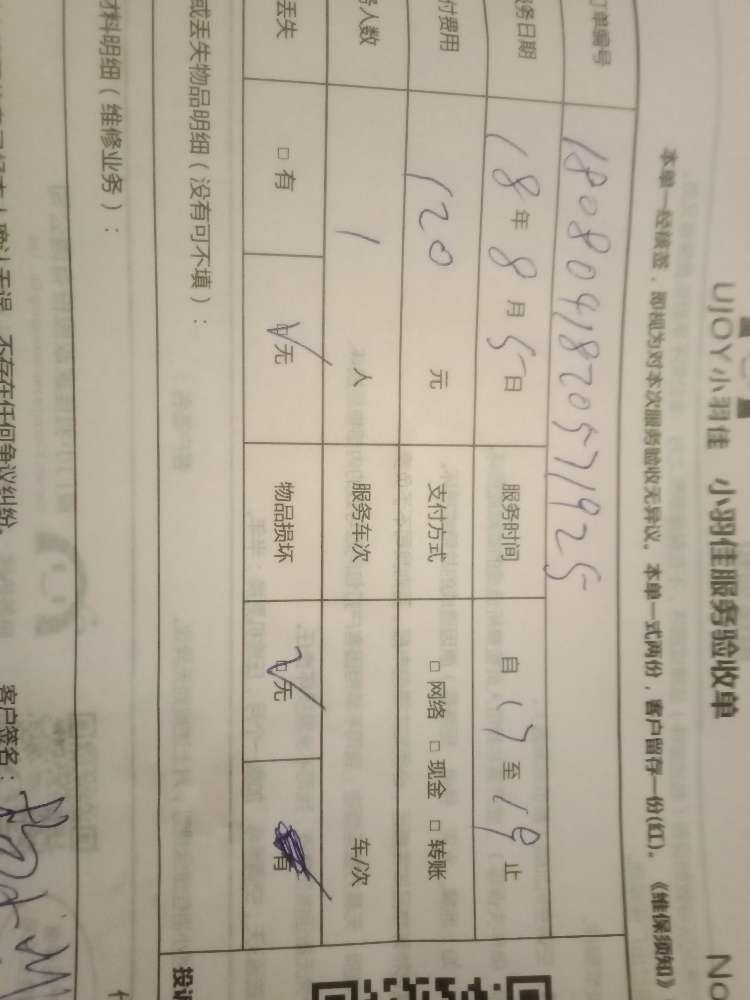 UJOY小羽佳 小羽佳服务验收单 No
本单一经核签，即视为对本次服务验收无异议。本单一式两份，客户留存一份(红)。《维保须知》
订单编号 1808041820571925
务日期 18年8月5日 服务时间 自17至19止
付费用 120元 支付方式 □网络 □现金 □转账
人数 1人 服务车次 车/次
丢失 □有 ☑无 物品损坏 ☑无 有
或丢失物品明细（没有可不填）：
投诉
材料明细（维修业务）：
确认无误，不存在任何争议纠纷。 客户签名：